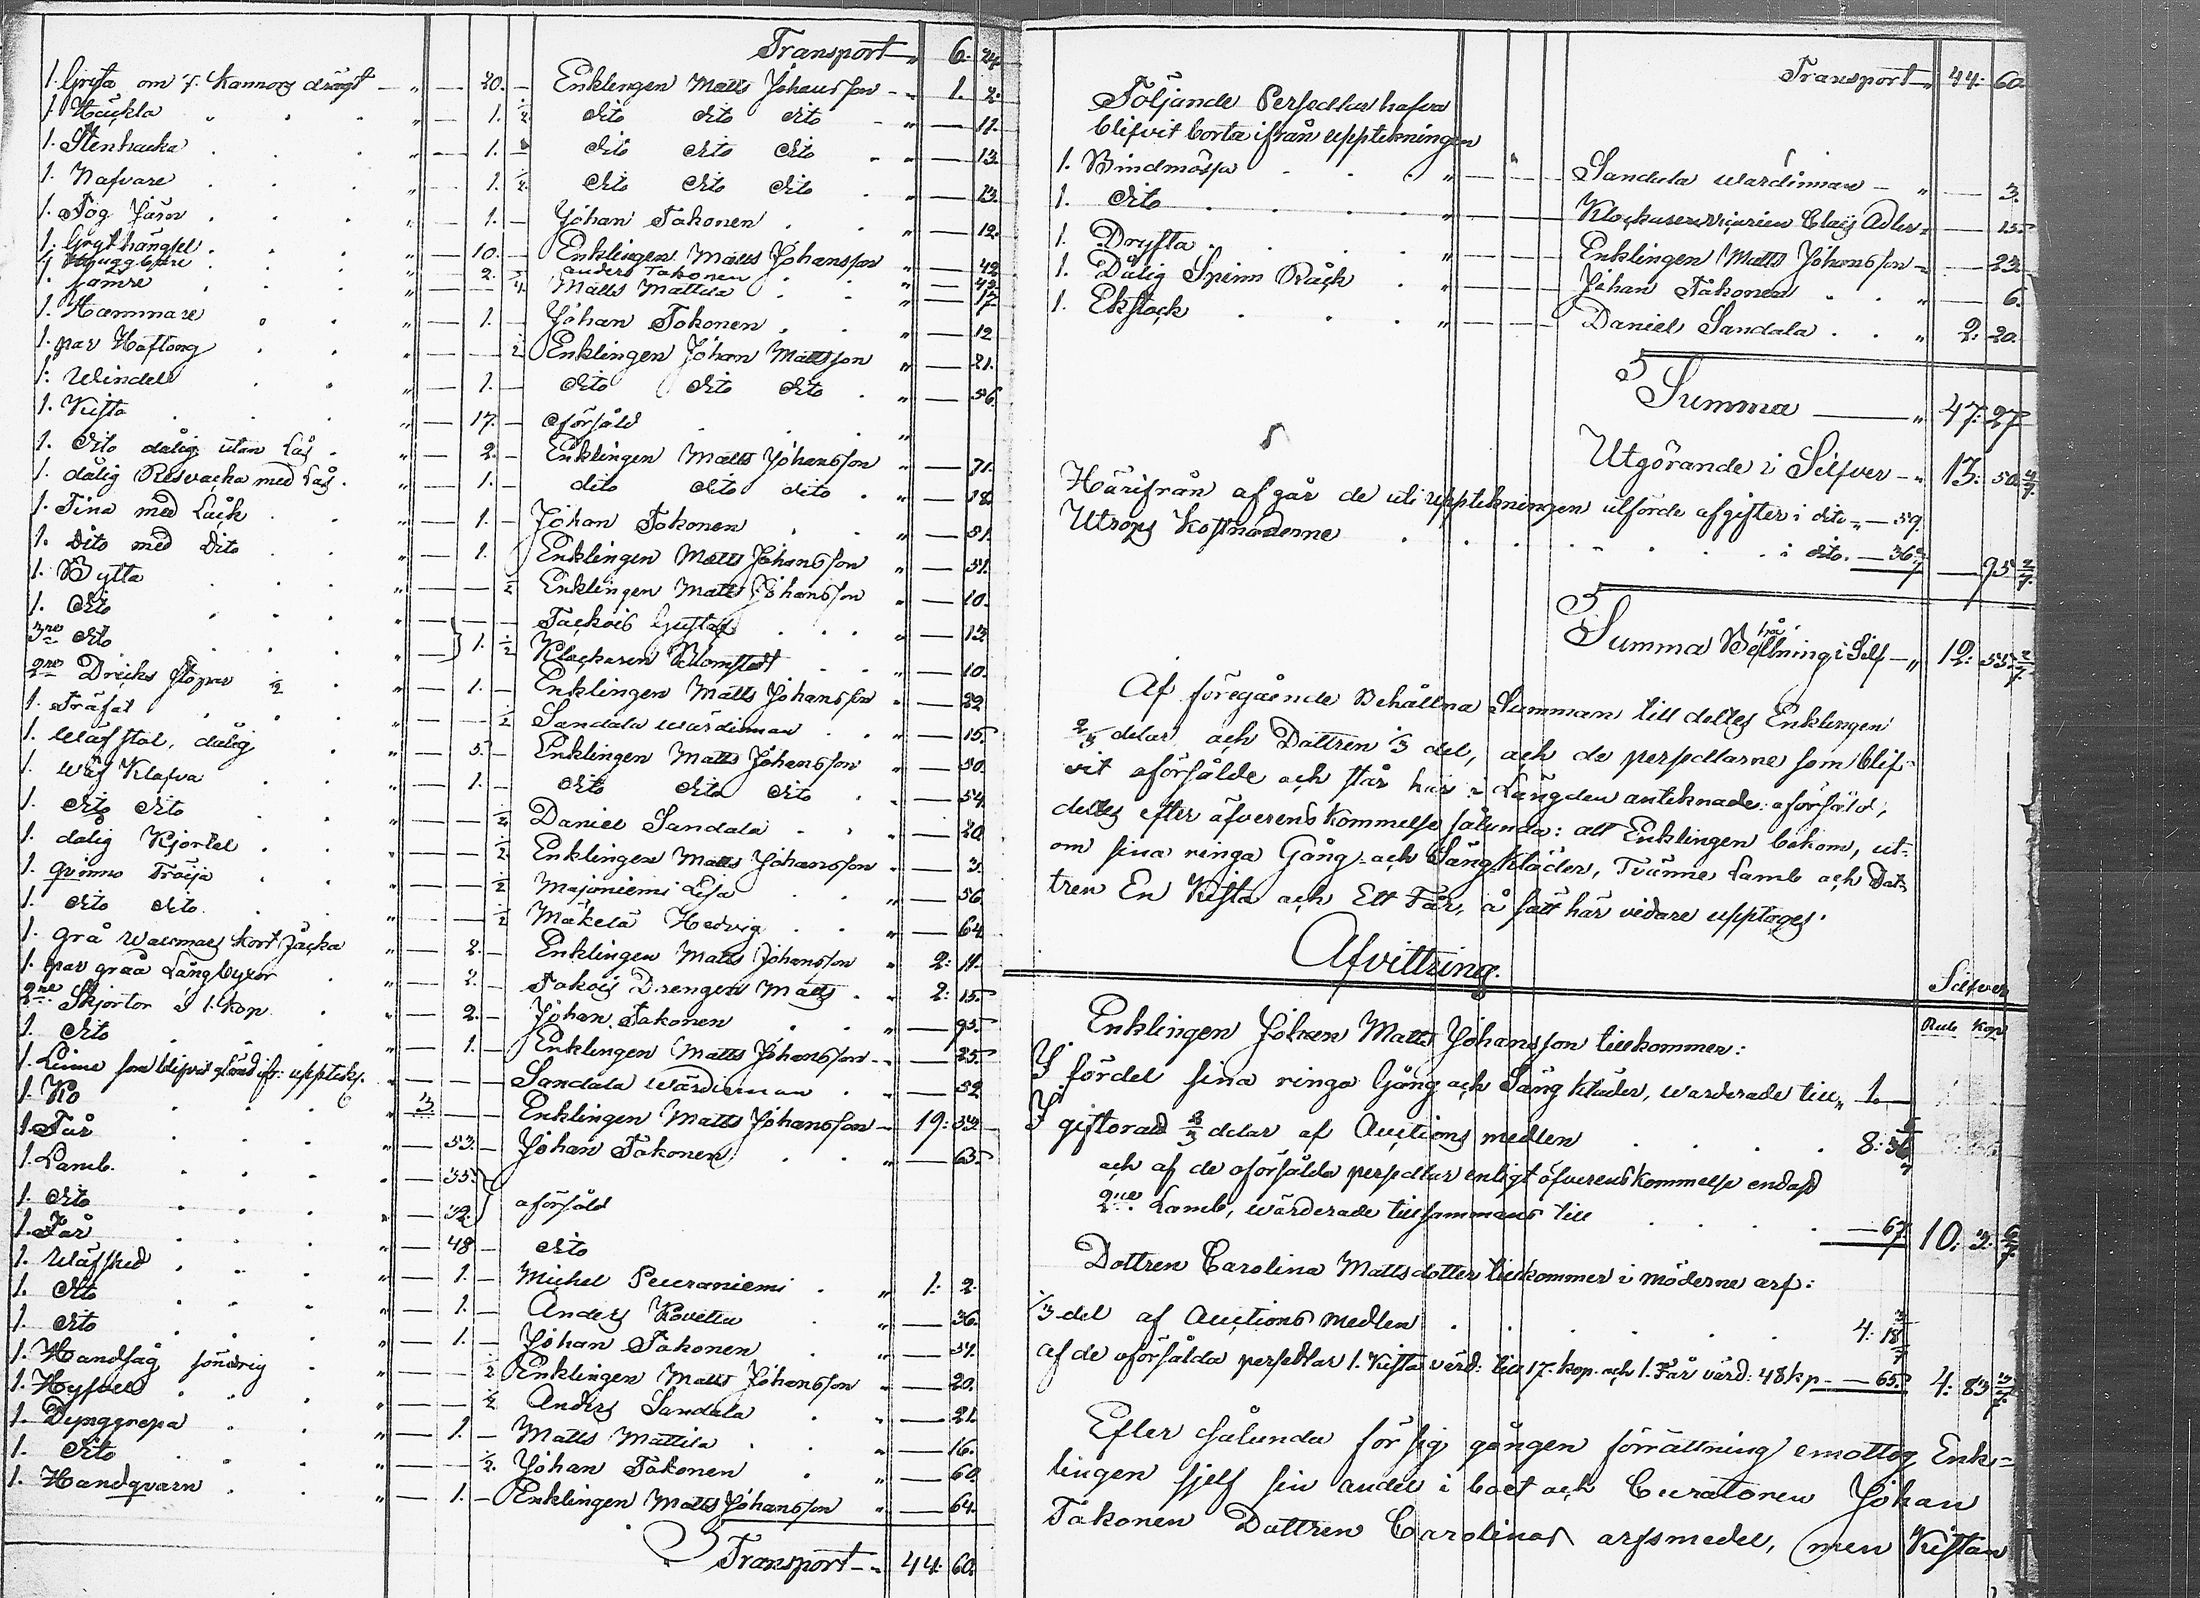 Transport 6. 24
1. Gryta om 7. Kannors drägt — " — 20. — Enklingen Matts Johansson — 1. 2.
1. Häckla . . . " — 1. ½ dito dito dito — " — 11.
1. Stenhacka . . . " — 1. dito dito dito . " — 13.
1. Nafvare . . . " — 1. ½ dito dito dito . " — 13.
1. Tög Järn . . . " — 1. — Johan Takonen . " — 12.
1. Grythängsel . . . " — 10. — Enklingen Matts Johansson " — 42.
1. Huggbjäre . . . " — 2. Anders Takonen " — 42.
1. sämre . . . " — ¼ Matts Mattila . . " — 17.
1. Hammare . . . " — 1. — Johan Takonen . . " — 12
1. par Hoftong . . . " — ½ Enklingen Johan Mattsson " — 21.
1. Windel . . . " — 1. — dito dito dito . " — 56.
1. Kista . . . " — 17. — oförsåld . . "
1. dito dålig utan Lås . " — 2. — Enklingen Matts Johansson " — 71.
1. dålig Resväcka med Lås . " — 1. — dito dito dito . " — 18.
1. Tina med Låck . . " — 1. — Johan Takonen . . " — 51.
1. Dito med Dito . . " — 1. Enklingen Matts Johansson " — 51.
1. Bytta . . . " — ½ Enklingen Matts Johansson " — 10.
1. dito . . . " — Tackois Gustaf . . . " — 12
3ne dito . . . " — 1. ½ Klockaren Blomstedt . . " — 10.
2ne Dricks stopar ½ . " — 1. — Enklingen Matts Johansson " — 22
1. Träfat . . . " — ½ Sandala wärdinnan . . " — 15.
1. Wäfstol, dålig . . " — 5. — Enklingen Matts Johansson " — 50.
1. wäf Klafva . . " — 1. — dito dito dito . " — 54.
1. dito dito . . " — ½ Daniel Sandala . . " — 20.
1. dålig Kjortel . . " — ½ Enklingen Matts Johansson " — 3.
1. grönno Tröija . . " — ½ Majoniemi Lisa . . " — 56.
1. dito dito . . " — ½ Mäkelä Hedvig . . " — 64
1. grå wallmars kort Jacka " — 2. — Enklingen Matts Johansson " 2: 11.
1. par gråa Långbyxor . " — 2. — Takois Drengen Matts . " 2: 15.
2ne Skjortor à 1. kop . " — 2. — Johan Takonen . . " — 95.
1. dito . . . " — 1. — Enklingen Matts Johansson — " — 25.
1. Linne som blifvit glömd ifr: upptekn. " — Sandala wärdinnan . . " — 52
1. Ko . . . " 3 — Enklingen Matts Johansson — 19: 53.
1. Får . . . " — 53. — Johan Takonen . . " — 65.
1. Lamb . . . " — 35.
1. dito . . . " — 32. } oförsåld
1. Får . . . " — 48 — dito
1. Wäfsked . . . " — 1. — Michel Peuraniemi . " 1: 2.
1. dito . . . " — 1. — Anders Kovetta . " — 36.
1. dito . . . " — 1. — Johan Takonen . " — 51.
1. Handsåg söndrig . " — ½ Enklingen Matts Johansson " — 20.
1. Hyfvel . . . " — ½ Anders Sandala . " — 21.
1. Dynggrepa . . " — 1. — Matts Mattila . " — 16.
1. dito . . . " — ½. Johan Takonen . " — 60.
1. Handqvarn . . " — 1. — Enklingen Matts Johansson " — 64.
Transport — " 44: 60.
Transport — " 44: 60.
Följande Persedlar hafva
blifvit borta ifrån upptekningen
1. Bindmössa . . . " — Sandala wärdinnan — " — 3.
1. dito . . . " — Klockarevicarien Claes Adler " — 15.
1. Dryfta . . . " — Enklingen Matts Johansson — " — 23.
1. Dålig Spinn Råck . " — Johan Takonen . . " — 6.
1. Ekstock . . . " — Daniel Sandala . . " 2: 20.
Summa — " 47: 27
Utgörande i Silfver — " 13: 50 4/7.
Härifrån afgår de uti upptekningen utförde afgifter i dito " — 59.
Utrops Kostnaderne . . . . i dito. — 36 2/7 — 95 2/7.
Summa Behållning i Silf — " 12: 55 2/7
Af föregående Behållna Summan till deltes Enklingen
2/3 delar och Dottren 1/3 del, och de persedlarne som blif-
vit oförsålde och står här i Längden anteknade: oförsåld,
deltes efter öfverenskommelse sålunda: att Enklingen bekom, ut-
om sina ringa Gång- och Sängkläder, Tvänne Lamb och Dot-
tren En Kista och Ett Får, å sätt här vidare upptages.
Afvittring.
Silfver
Rub Kop
Enklingen Johan Matts Johansson tillkommer:
I fördel sina ringa Gång och Sängkläder, warderade till " 1. —
I giftorätt 2/3 delar af Auctions medlen . . . 8: 36 6/7
och af de oförsålda persedlar enligt öfverenskommelse endast
2ne Lamb, wärderade tillsammans till . . . — 67. 10: 3. 6/7.
Dottren Carolina Mattsdotter tillkommer i möderne arf:
1/3 del af Auctions medlen . . . . 4: 18 3/7
af de oförsålda persedlar 1. Kista värd: till 17. kop. och 1. Får värd: 48 kp — — 65. 4: 83 3/7.
Efter sålunda för sig gången förrättning emottog Enk=
lingen sjelf sin andel i boet och Curatoren Johan
Takonen Dottren Carolinas arfsmedel, men Kistan